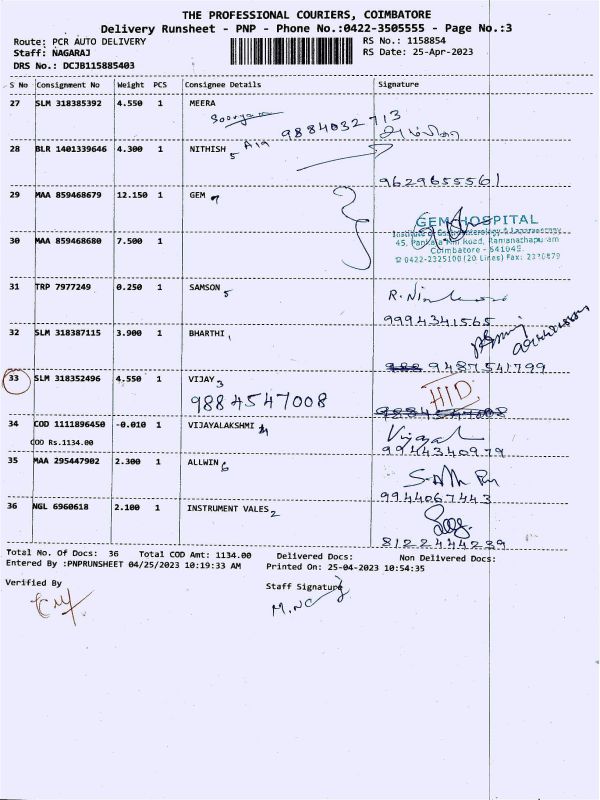 THE PROFESSIONAL COURIERS, COIMBATORE
Delivery Runsheet - PNP - Phone No.:0422-3505555 - Page No.:3
Route: PCR AUTO DELIVERY RS No.: 1158854
Staff: NAGARAJ RS Date: 25-Apr-2023
DRS No.: DCJB115885403
S No Consignment No Weight PCS Consignee Details Signature
27 SLM 318385392 4.550 1 MEERA
9884032713
28 BLR 1401339646 4.300 1 NITHISH 5
9629655561
29 MAA 859468679 12.150 1 GEM
GEM HOSPITAL
Institute of Gastroenterology & Laparoscopy
30 MAA 859468680 7.500 1
45, Pankaja Mill Road, Ramanathapuram
Coimbatore - 641045.
0422-2325100 (20 Lines) Fax:
31 TRP 7977249 0.250 1 SAMSON 5
9994341565
32 SLM 318387115 3.900 1 BHARTHI 1
9487541799
33 SLM 318352496 4.550 1 VIJAY 3 HID
9884547008
34 COD 1111896450 -0.010 1 VIJAYALAKSHMI
COD Rs.1134.00
9944340979
35 MAA 295447902 2.300 1 ALLWIN 6
9944067443
36 NGL 6960618 2.100 1 INSTRUMENT VALES 2
8122444239
Total No. Of Docs: 36 Total COD Amt: 1134.00 Delivered Docs: Non Delivered Docs:
Entered By :PNPRUNSHEET 04/25/2023 10:19:33 AM Printed On: 25-04-2023 10:54:35
Verified By Staff Signature